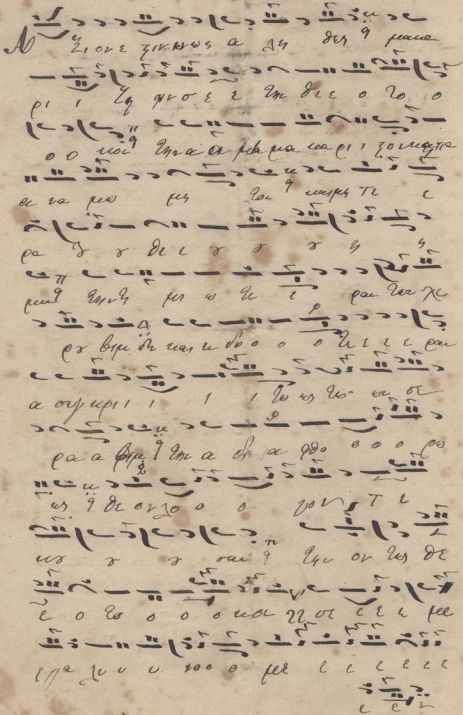 Α ξι ον ε στιν ως α λη θως μακα
ρι ι ζειν σε ε ε την θε ε ο το ο
ο ο κον την α ει μα κα ρι ι στον και πα
α να μω μη τον και μη τε ε
ρα τȣ ȣ θε ε ȣ ȣ ȣ η η
μων την τι μι ω τε ε ραν των χε
ρου βιμ και εν δο ο ο ο ξο τε ε ε ραν
α συγκρι ι ι ι ι τως των σε
ρα α φιμ την α δι α φθο ο ο ο ρω
ως θε ον λο ο ο γον τε ε
κȣ ȣ ȣ σαν την ον τως θε
ε ο το ο ο ο κον σε ε ε ε με
ε γα λυ υ υ νο ο ο με ε ε ε ε ε ε
ε ε ν